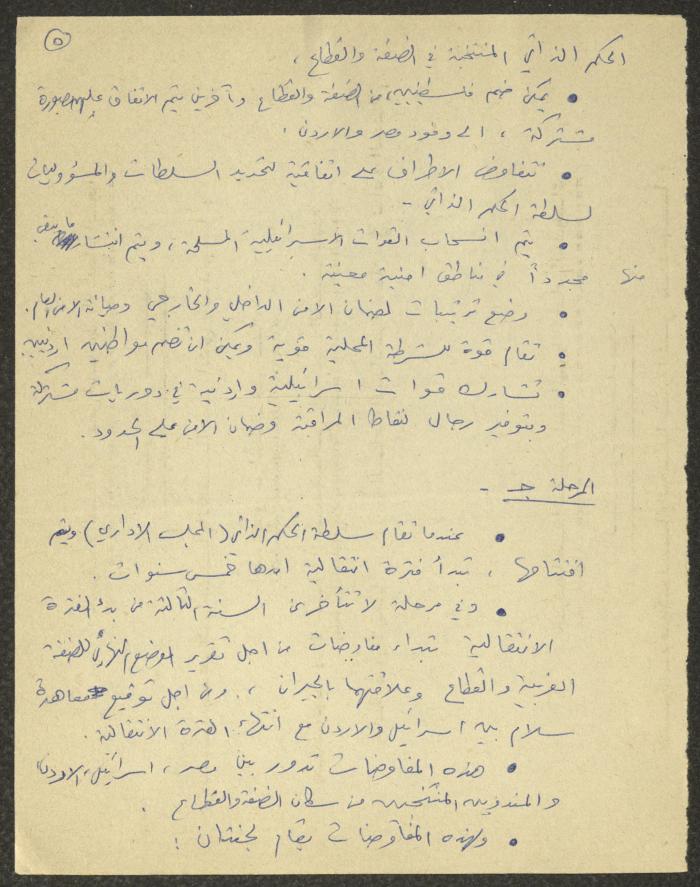 ٥
الحكم الذاتي المنتخبة في الضفة والقطاع ،
• يمكن ضم فلسطينيين من الضفة والقطاع وآخرين يتم الاتفاق عليهم بصورة
مشتركة ، الى وفود مصر والاردن .
• تتفاوض الاطراف على اتفاقية لتحديد السلطات والمسؤوليات
لسلطة الحكم الذاتي -
• يتم انسحاب القوات الاسرائيلية المسلحة ، ويتم انتشار ما بقي
منها مجدداً في مناطق امنية معينة .
• وضع ترتيبات لضمان الامن الداخلي والخارجي وصيانة الامن العام .
• تقام قوة للشرطة المحلية قوية ويمكن ان تضم مواطنين اردنيين
• تشارك قوات اسرائيلية واردنية في دوريات مشتركة
وبتوفير رجال لنقاط المراقبة وضمان الامن على الحدود .
المرحلة جـ -
• عندما تقام سلطة الحكم الذاتي (المجلس الاداري) ويتم
افتتاحها ، تبدأ فترة انتقالية امدها خمس سنوات .
• وفي مرحلة لا تتأخر عن السنة الثالثة من بدء الفترة
الانتقالية تبداء مفاوضات من اجل تقرير الوضع النهائي للضفة
الغربية والقطاع وعلاقتهما بالجيران ، ومن اجل توقيع معاهدة
سلام بين اسرائيل والاردن مع انتهاء الفترة الانتقالية .
• هذه المفاوضات تدور بين مصر ، اسرائيل ، الاردن
والمندوبين المنتخبين من سكان الضفة والقطاع .
• ولهذه المفاوضات تقام لجنتان :